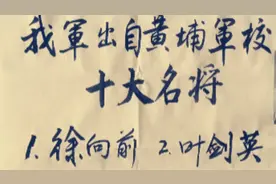 我軍出自黄埔軍校
十大名将
1.徐向前 2.叶剑英